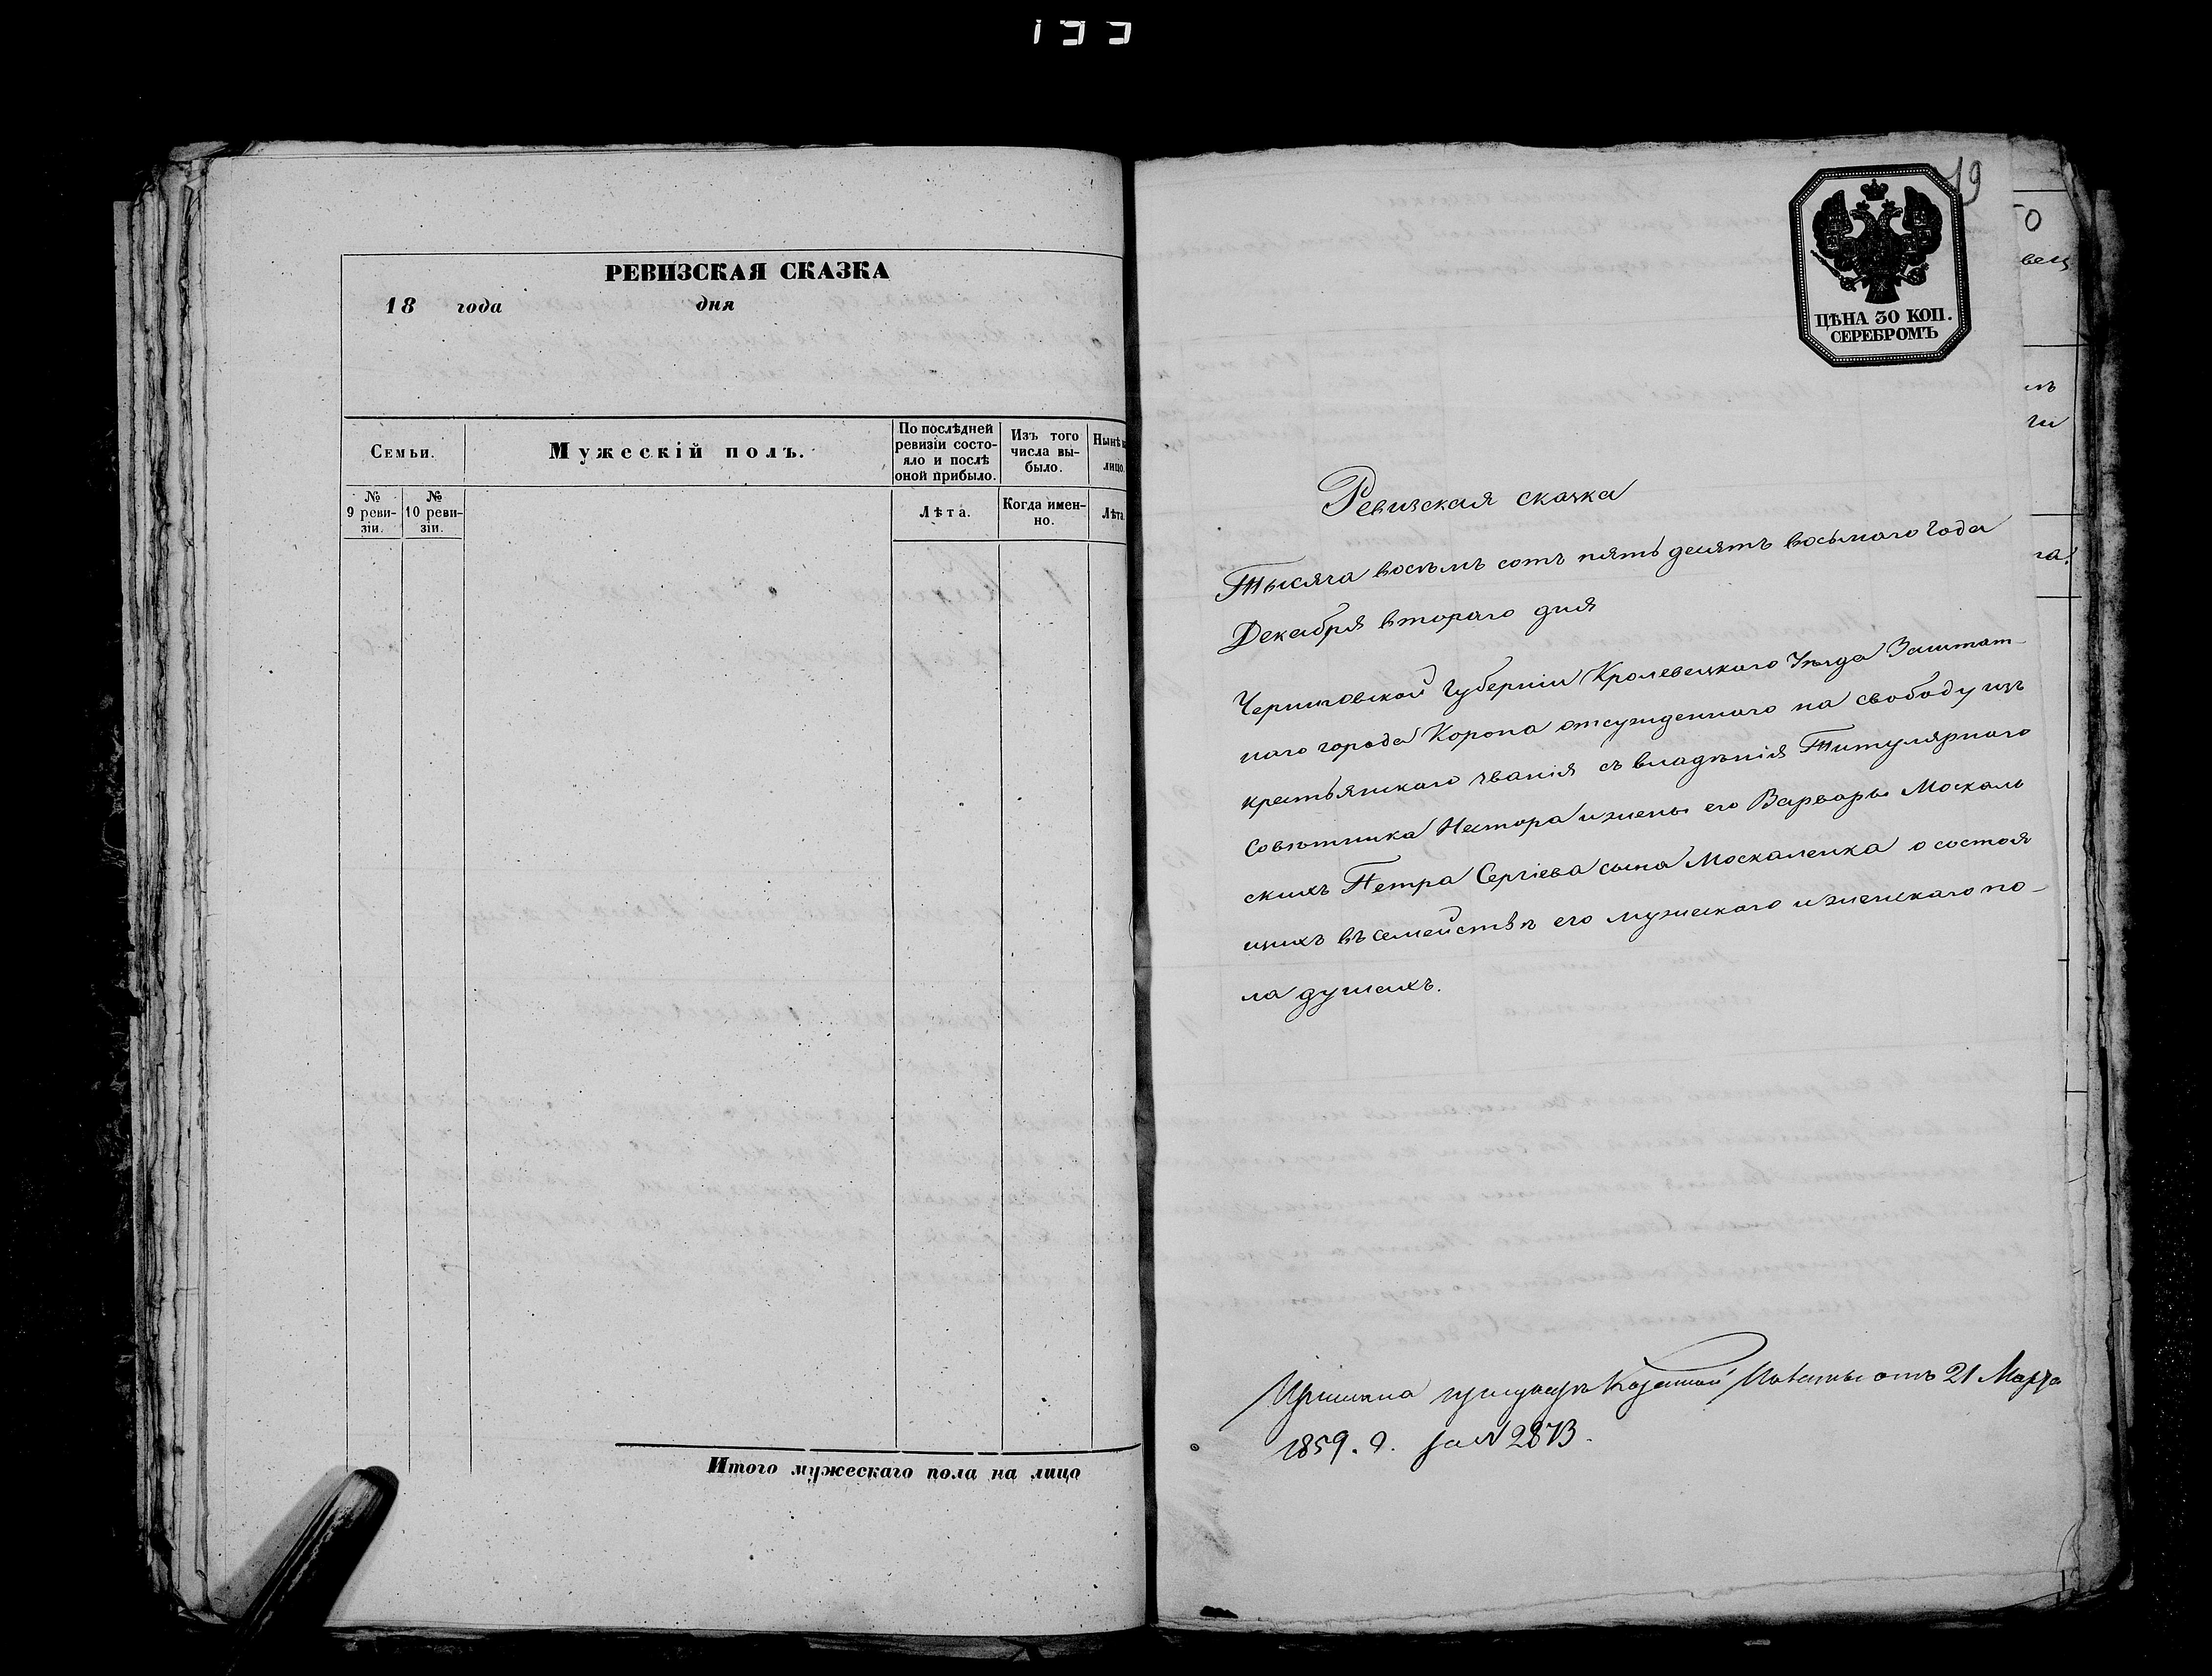 199
РЕВИЗСКАЯ СКАЗКА
18 года дня
Семьи.
Мужескій полъ.
По послѣдней ревизіи состо-
яло и послѣ оной прибыло.
Изъ того числа вы-
было.
Нынѣ
лицо.
№ 9 реви-
зіи.
№ 10 реви-
зіи.
Лѣта.
Когда имен-
но.
Лѣта
Итого мужескаго пола на лицо
ЦѢНА 30 КОП.
СЕРЕБРОМЪ
Ревизская сказка
Тысяча восемъ сотъ пять десятъ восьмаго Года
Декабря втораго дня
Черниговской Губерніи Кролевецкаго Уѣзда Заштат-
наго города Коропа отсужденнаго на свободу изъ
крестьянскаго званія съ владѣнія Титулярнаго
Совѣтника Нестора и жены его Варвары Москаль
скихъ Петра Сергіева сына Москаленка о состоя
щихъ въ семействѣ его мужескаго и женскаго по-
ла душахъ.
при указѣ Казенной Палаты отъ 21 Марта
1859. г. за № 2873.